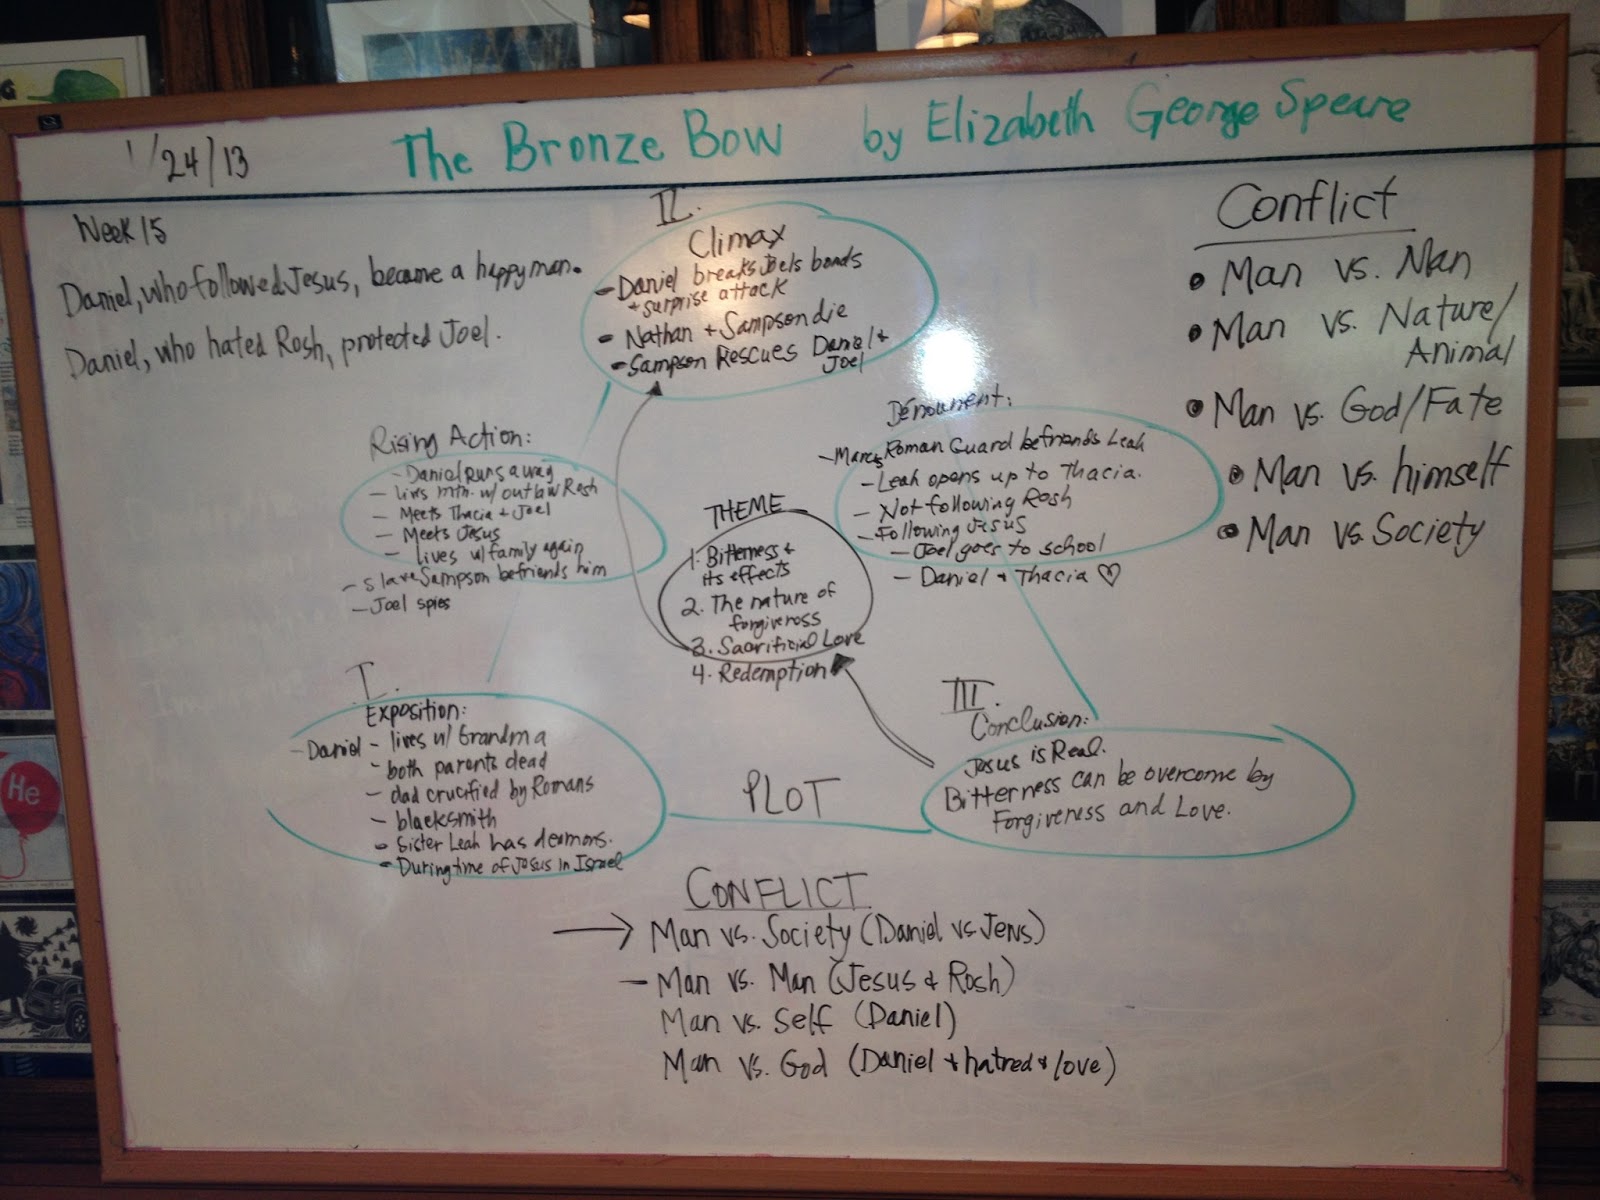 1/24/13
The Bronze Bow by Elizabeth George Speare
Week 15
Daniel, who followed Jesus, became a happy man.
Daniel, who hated Rosh, protected Joel.
II.
Climax
- Daniel breaks Joels bonds
+ surprise attack
- Nathan + Sampson die
- Sampson Rescues Daniel +
Joel
Conflict
• Man vs. Man
• Man vs. Nature/
Animal
• Man vs. God/Fate
• Man vs. himself
• Man vs. Society
Rising Action:
- Daniel runs away
- lives mtn. w/ outlaw Rosh
- Meets Thacia + Joel
- Meets Jesus
- lives w/ family again
- slave Sampson befriends him
- Joel spies
THEME
1. Bitterness +
its effects
2. The nature of
forgiveness
3. Sacrificial Love
4. Redemption
Denoument:
- Marcus Roman Guard befriends Leah
- Leah opens up to Thacia.
- Not following Rosh
- Following Jesus
- Joel goes to school
- Daniel + Thacia ♡
I.
Exposition:
- Daniel - lives w/ Grandma
- both parents dead
- dad crucified by Romans
- blacksmith
- Sister Leah has demons.
- During time of Jesus in Israel
PLOT
III.
Conclusion:
Jesus is Real.
Bitterness can be overcome by
Forgiveness and Love.
CONFLICT
→ Man vs. Society (Daniel vs Jews)
- Man vs. Man (Jesus + Rosh)
Man vs. Self (Daniel)
Man vs. God (Daniel + hatred + love)
He